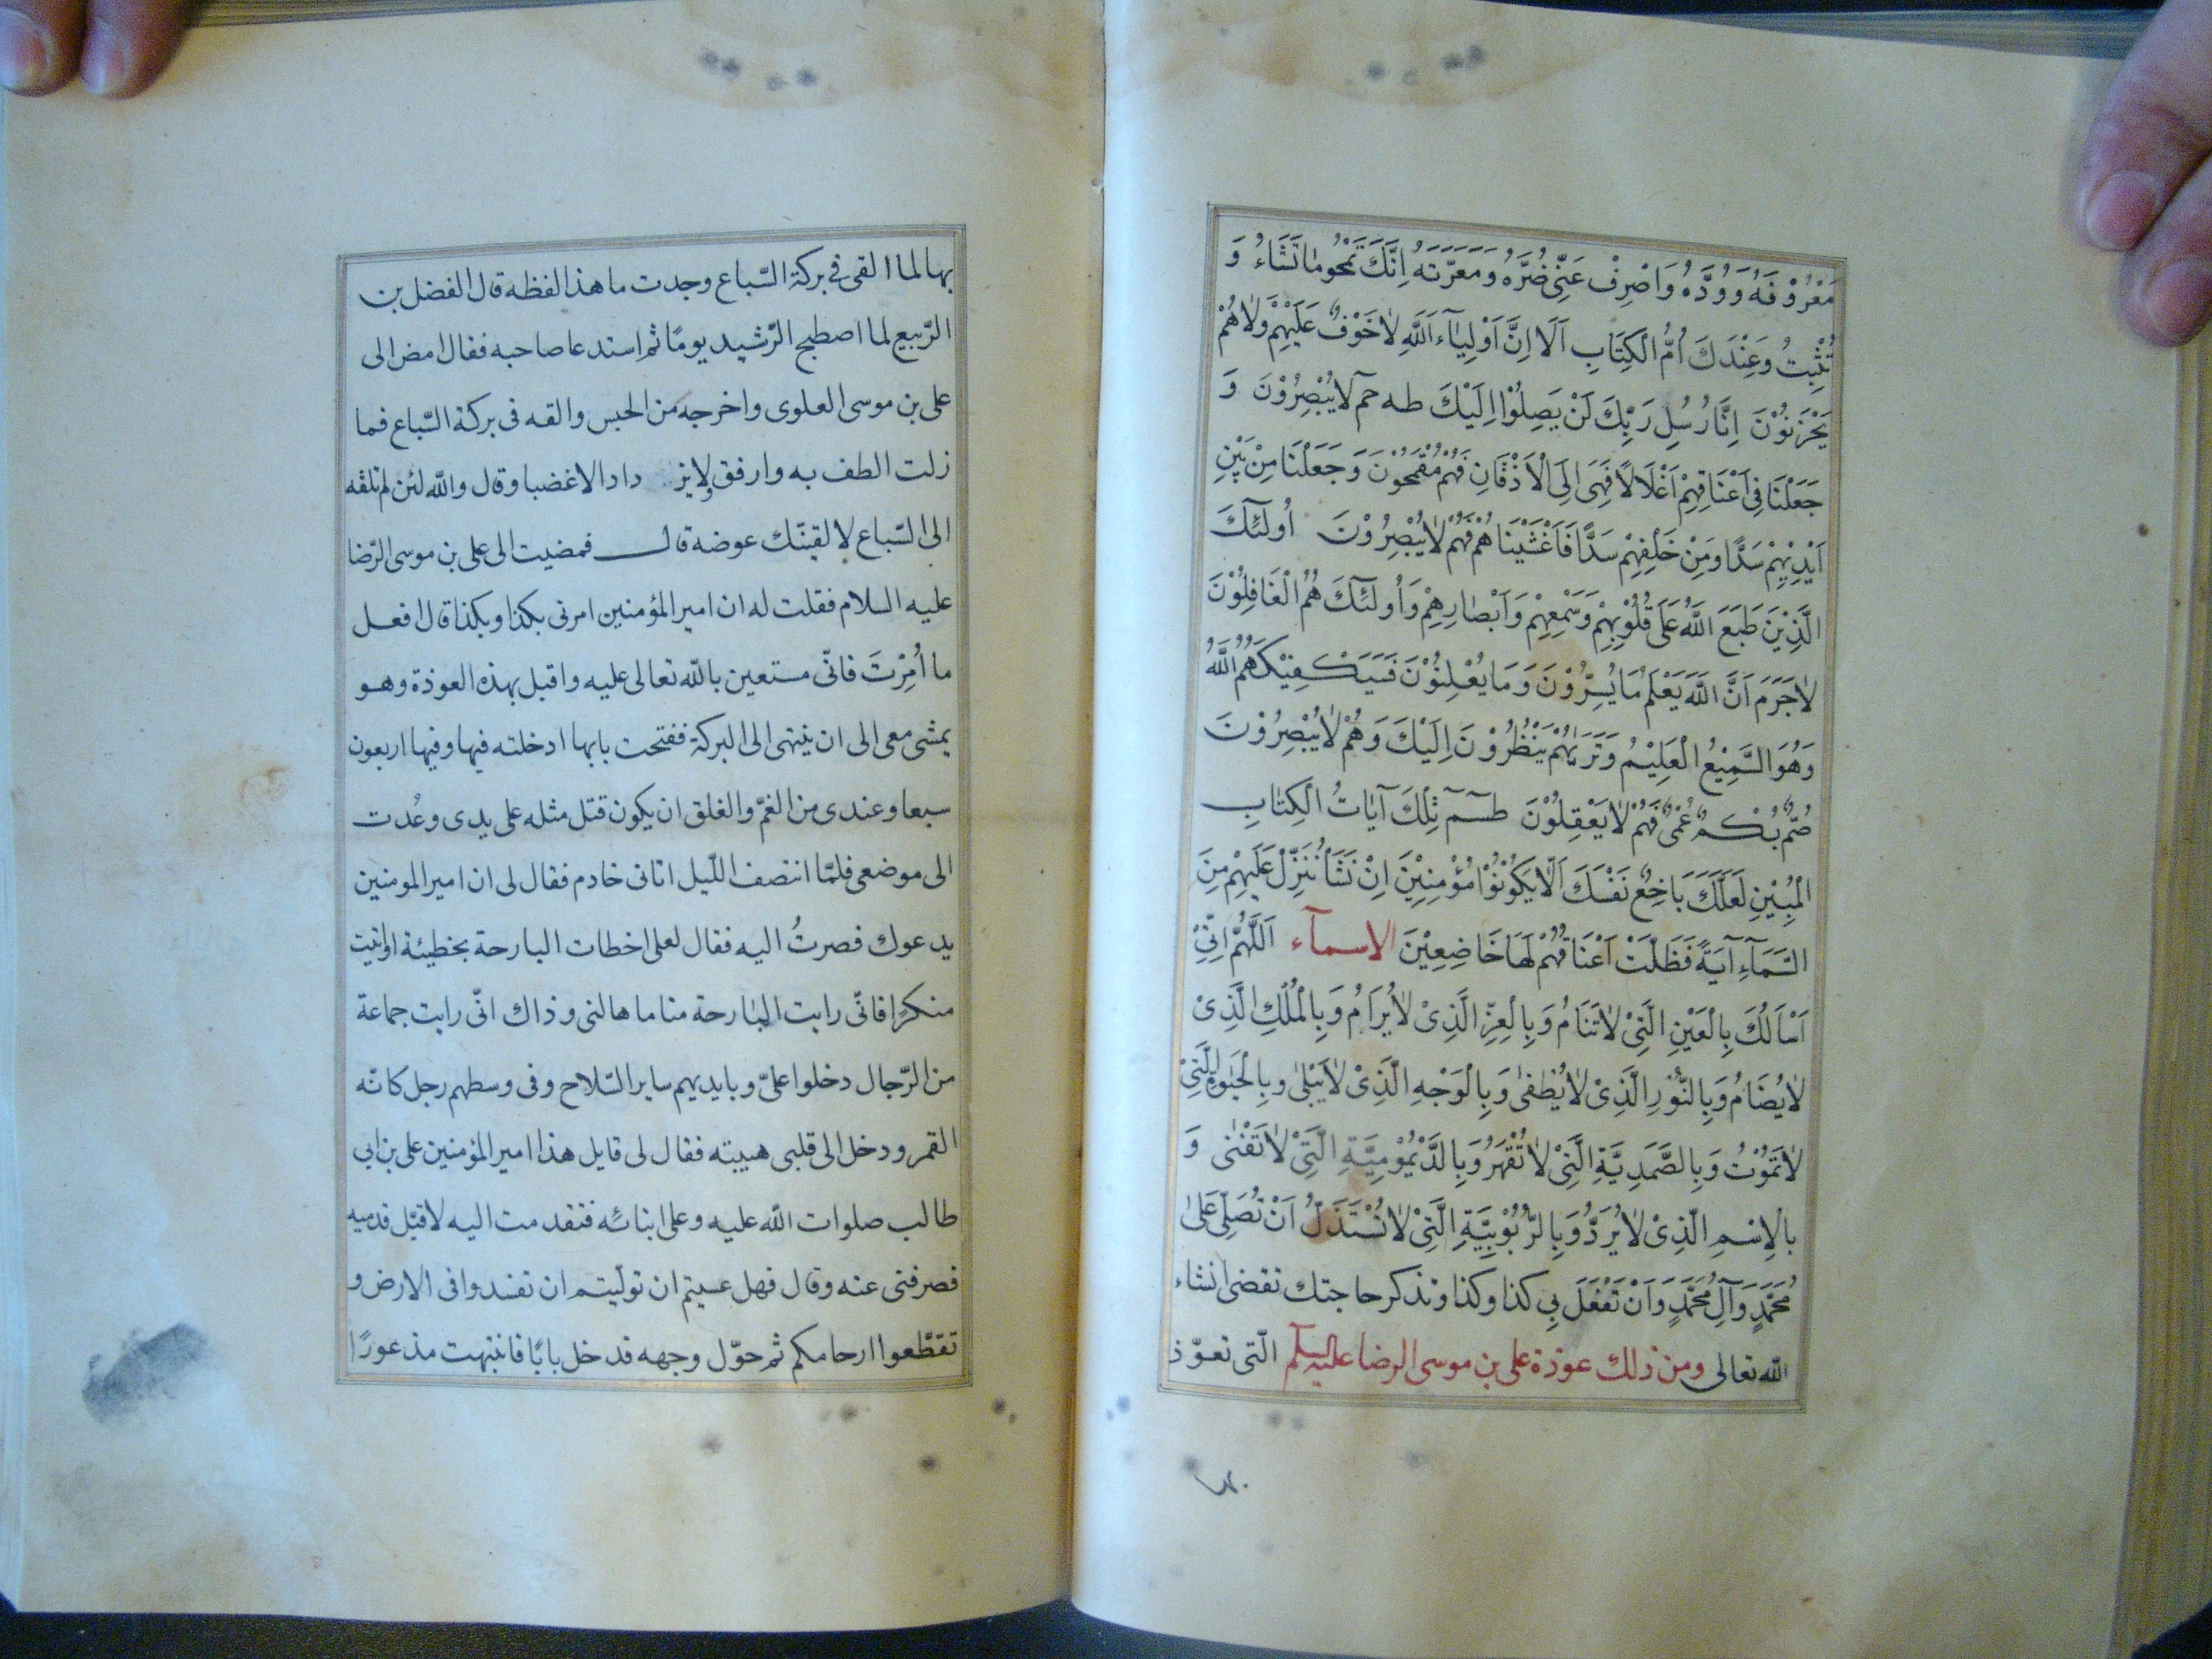 مَعْرُوْفَهُ وَوُدَّهُ وَاصْرِفْ عَنِّیْ ضُرَّهُ وَمَعَرَّتَهُ اِنَّكَ تَمْحُو مٰا تَشَاءُ وَ
تُثْبِتُ وَعِنْدَكَ اُمُّ الْكِتَابِ اَلَا اِنَّ اَوْلِيٰآءَ اللّٰهِ لٰا خَوْفٌ عَلَيْهِمْ وَلٰا هُمْ
يَحْزَنُوْنَ اِنَّا رُسُلِ رَبِّكَ لَنْ يَصِلُوْا اِلَيْكَ طه حم لٰا يُبْصِرُوْنَ وَ
جَعَلْنَا فِیْ اَعْنَاقِهِمْ اَغْلَالًا فَهِیَ اِلَی الْاَذْقَانِ فَهُمْ مُقْمَحُوْنَ وَجَعَلْنَا مِنْ بَيْنِ
اَيْدِيْهِمْ سَدًّا وَمِنْ خَلْفِهِمْ سَدًّا فَاَغْشَيْنَاهُمْ فَهُمْ لٰا يُبْصِرُوْنَ اُولٰئِكَ
الَّذِيْنَ طَبَعَ اللّٰهُ عَلَی قُلُوْبِهِمْ وَسَمْعِهِمْ وَاَبْصٰارِهِمْ وَاُولٰئِكَ هُمُ الْغَافِلُوْنَ
لٰا جَرَمَ اَنَّ اللّٰهَ يَعْلَمُ مَا يُسِرُّوْنَ وَمَا يُعْلِنُوْنَ فَسَيَكْفِيْكَهُمُ اللّٰهُ
وَهُوَ السَّمِيْعُ الْعَلِيْمُ وَتَرَيٰهُمْ يَنْظُرُوْنَ اِلَيْكَ وَهُمْ لٰا يُبْصِرُوْنَ
صُمٌّ بُكْمٌ عُمْیٌ فَهُمْ لٰا يَعْقِلُوْنَ طسٓمٓ تِلْكَ آيٰاتُ الْكِتٰابِ
الْمُبِيْنِ لَعَلَّكَ بَاخِعٌ نَفْسَكَ اَلّٰا يَكُوْنُوْا مُؤْمِنِيْنَ اِنْ نَشَأْ نُنَزِّلْ عَلَيْهِمْ مِنَ
السَّمَآءِ آيَةً فَظَلَّتْ اَعْنَاقُهُمْ لَهَا خَاضِعِيْنَ الاسمآء اَللّٰهُمَّ اِنِّیْ
اَسْاَلُكَ بِالْعَيْنِ الَّتِیْ لٰا تَنَامُ وَبِالْعِزِّ الَّذِیْ لٰا يُرَامُ وَبِالْمُلْكِ الَّذِیْ
لٰا يُضَامُ وَبِالنُّوْرِ الَّذِیْ لٰا يُطْفیٰ وَبِالْوَجْهِ الَّذِیْ لٰا يَبْلیٰ وبِالْحَيٰوةِ الَّتِیْ
لٰا تَمُوْتُ وَبِالصَّمَدِيَّةِ الَّتِیْ لٰا تُقْهَرُ وَبِالدَّيْمُوْمِيَّةِ الَّتِیْ لٰا تَفْنٰی وَ
بالْاِسْمِ الَّذِیْ لٰا يُرَدُّ وَبِالرُّبُوْبِيَّةِ الَّتِیْ لٰا تُسْتَذَلُّ اَنْ تُصَلِّیَ عَلیٰ
مُحَمَّدٍ وَآلِ مُحَمَّدٍ وَاَنْ تَفْعَلَ بِی كذا وكذا وتذكر حاجتك تقضی انشاء
الله تعالی ومن ذلك عوذة علی بن موسی الرضا علیه السلم الّتی تعوّذ
بها لما القی فی بركة السّباع وجدت ما هذا لفظه قال الفضل بن
الرّبيع لما اصطبح الرّشيد يومًا ثم استدعا صاحبه فقال امض الی
علی بن موسی العلوی واخرجه من الحبس والقه فی بركة السّباع فما
زلت الطف به وارفق ولا يزداد الا غضبا وقال والله لئن لم تلقه
الی السّباع لالقينّك عوضة قال فمضيت الی علی بن موسی الرّضا
عليه السلام فقلت له ان امير المؤمنين امرنی بكذا وبكذا قال افعل
ما اُمِرْتَ فانّی مستعين باللّه تعالی عليه واقبل بهذه العوذة وهو
يمشی معی الی ان ينتهی الی البركة ففتحت بابها ادخلته فيها وفيها اربعون
سبعا وعندی من الغمّ والغلق ان يكون قتل مثله علی يدی وعُدت
الی موضعی فلمّا انتصف اللّيل اتانی خادم فقال لی ان امير المومنين
يدعوك فصرتُ اليه فقال لعلی اخطات البارحة بخطيئة او اتيت
منكرًا فانّی رايت البٰارحة مناما هالنی وذاك انّی رايت جماعة
من الرّجال دخلوا علیّ وبايديهم ساير السّلاح وفی وسطهم رجل كانّه
القمر ودخل الی قلبی هيبته فقال لی قايل هذا امير المؤمنين علی بن ابی
طالب صلوات الله عليه وعلی ابنائه فتقدمت اليه لاقبّل قدميه
فصرفنی عنه وقال فهل عسيتم ان تولّيتم ان تفسدوا فی الارض و
تقطّعوا ارحامكم ثم حوّل وجهه فدخل بابًا فانتبهت مذعورًا